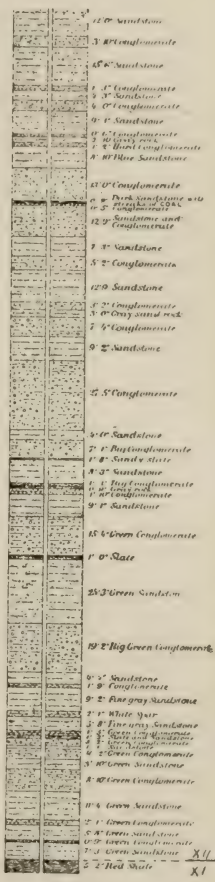 12' 0" Sandstone
3' 10" Conglomerate
15' 6" Sandstone
1' 3" Conglomerate
4' 3" Sandstone
4' 0" Conglomerate
9' 1" Sandstone
0' 6" Conglomerate
3' 10" Gray rock
1' 2" Hard Conglomerate
8' 10" Blue Sandstone
13' 0" Conglomerate
Dark Sandstone with
streaks of COAL
0' 5" Conglomerate
12' 9" Sandstone and
Conglomerate
1' 3" Sandstone
5' 2" Conglomerate
12' 0" Sandstone
3' 2" Conglomerate
3' 0" Gray sand rock
7' 4" Conglomerate
9' 2" Sandstone
27' 5" Conglomerate
4' 0" Sandstone
7' 1" Big Conglomerate
1' 8" Sandy slate
8' 3" Sandstone
1' 1" Big Conglomerate
Gray rock
1' 10" Conglomerate
9' 1" Sandstone
15' 4" Green Conglomerate
1' 0" Slate
28' 3" Green Sandstone
19' 2" Big Green Conglomerate
Sandstone
1' 9" Conglomerate
9' 2" Fine gray Sandstone
2' 1" White
3' 8" Fine gray Sandstone
Green Conglomerate
Slate and Sandstone
Green Conglomerate
Green Conglomerate
3' 10" Green Sandstone
8' 10" Green Conglomerate
11' 4" Green Sandstone
2' 1" Green Conglomerate
5' 8" Green Sandstone
0' 9" Green Conglomerate
7' 3" Green Sandstone XII
5' 2" Red Shale XI